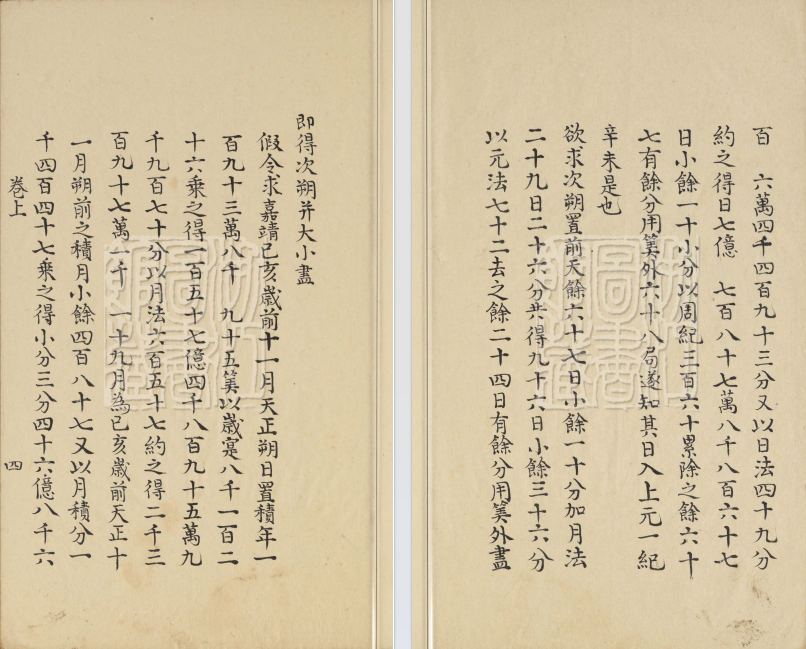 百　六萬四千四百九十三分又以日法四十九分
約之得日七億　七百八十七萬八千八百六十七
日小餘一十小分以周紀三百六十累除之餘六十
七有餘分用筭外六十八局遂知其日入上元一紀
辛未是也
欲求次朔置前天餘六十七日小餘一十分加月法
二十九日二十六分共得九十六日小餘三十六分
以元法七十二去之餘二十四日有餘分用筭外盡
即得次朔并大小盡
假令求嘉靖己亥歲前十一月天正朔日置積年一
百九十三萬八千　九十五筭以歲寔八千一百二
十六乘之得一百五十七億四千八百九十五萬九
千九百七十分以月法六百五十七約之得二千三
百九十七萬一千　一十九月為己亥歲前天正十
一月朔前之積月小餘四百八十七又以月積分一
千四百四十七乘之得小分三分四十六億八千六
卷上
四